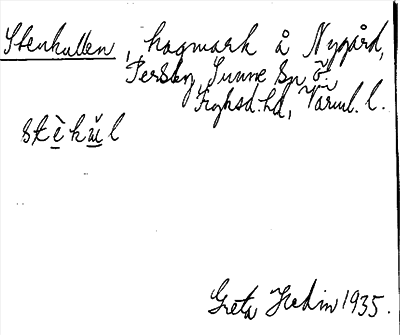 Stenkullen, hagmark å Nygård,
Persby, Sunne Sn Ö.
Fryksd. hd, Värml. l.
stèkŭl
Greta Hedin 1935.